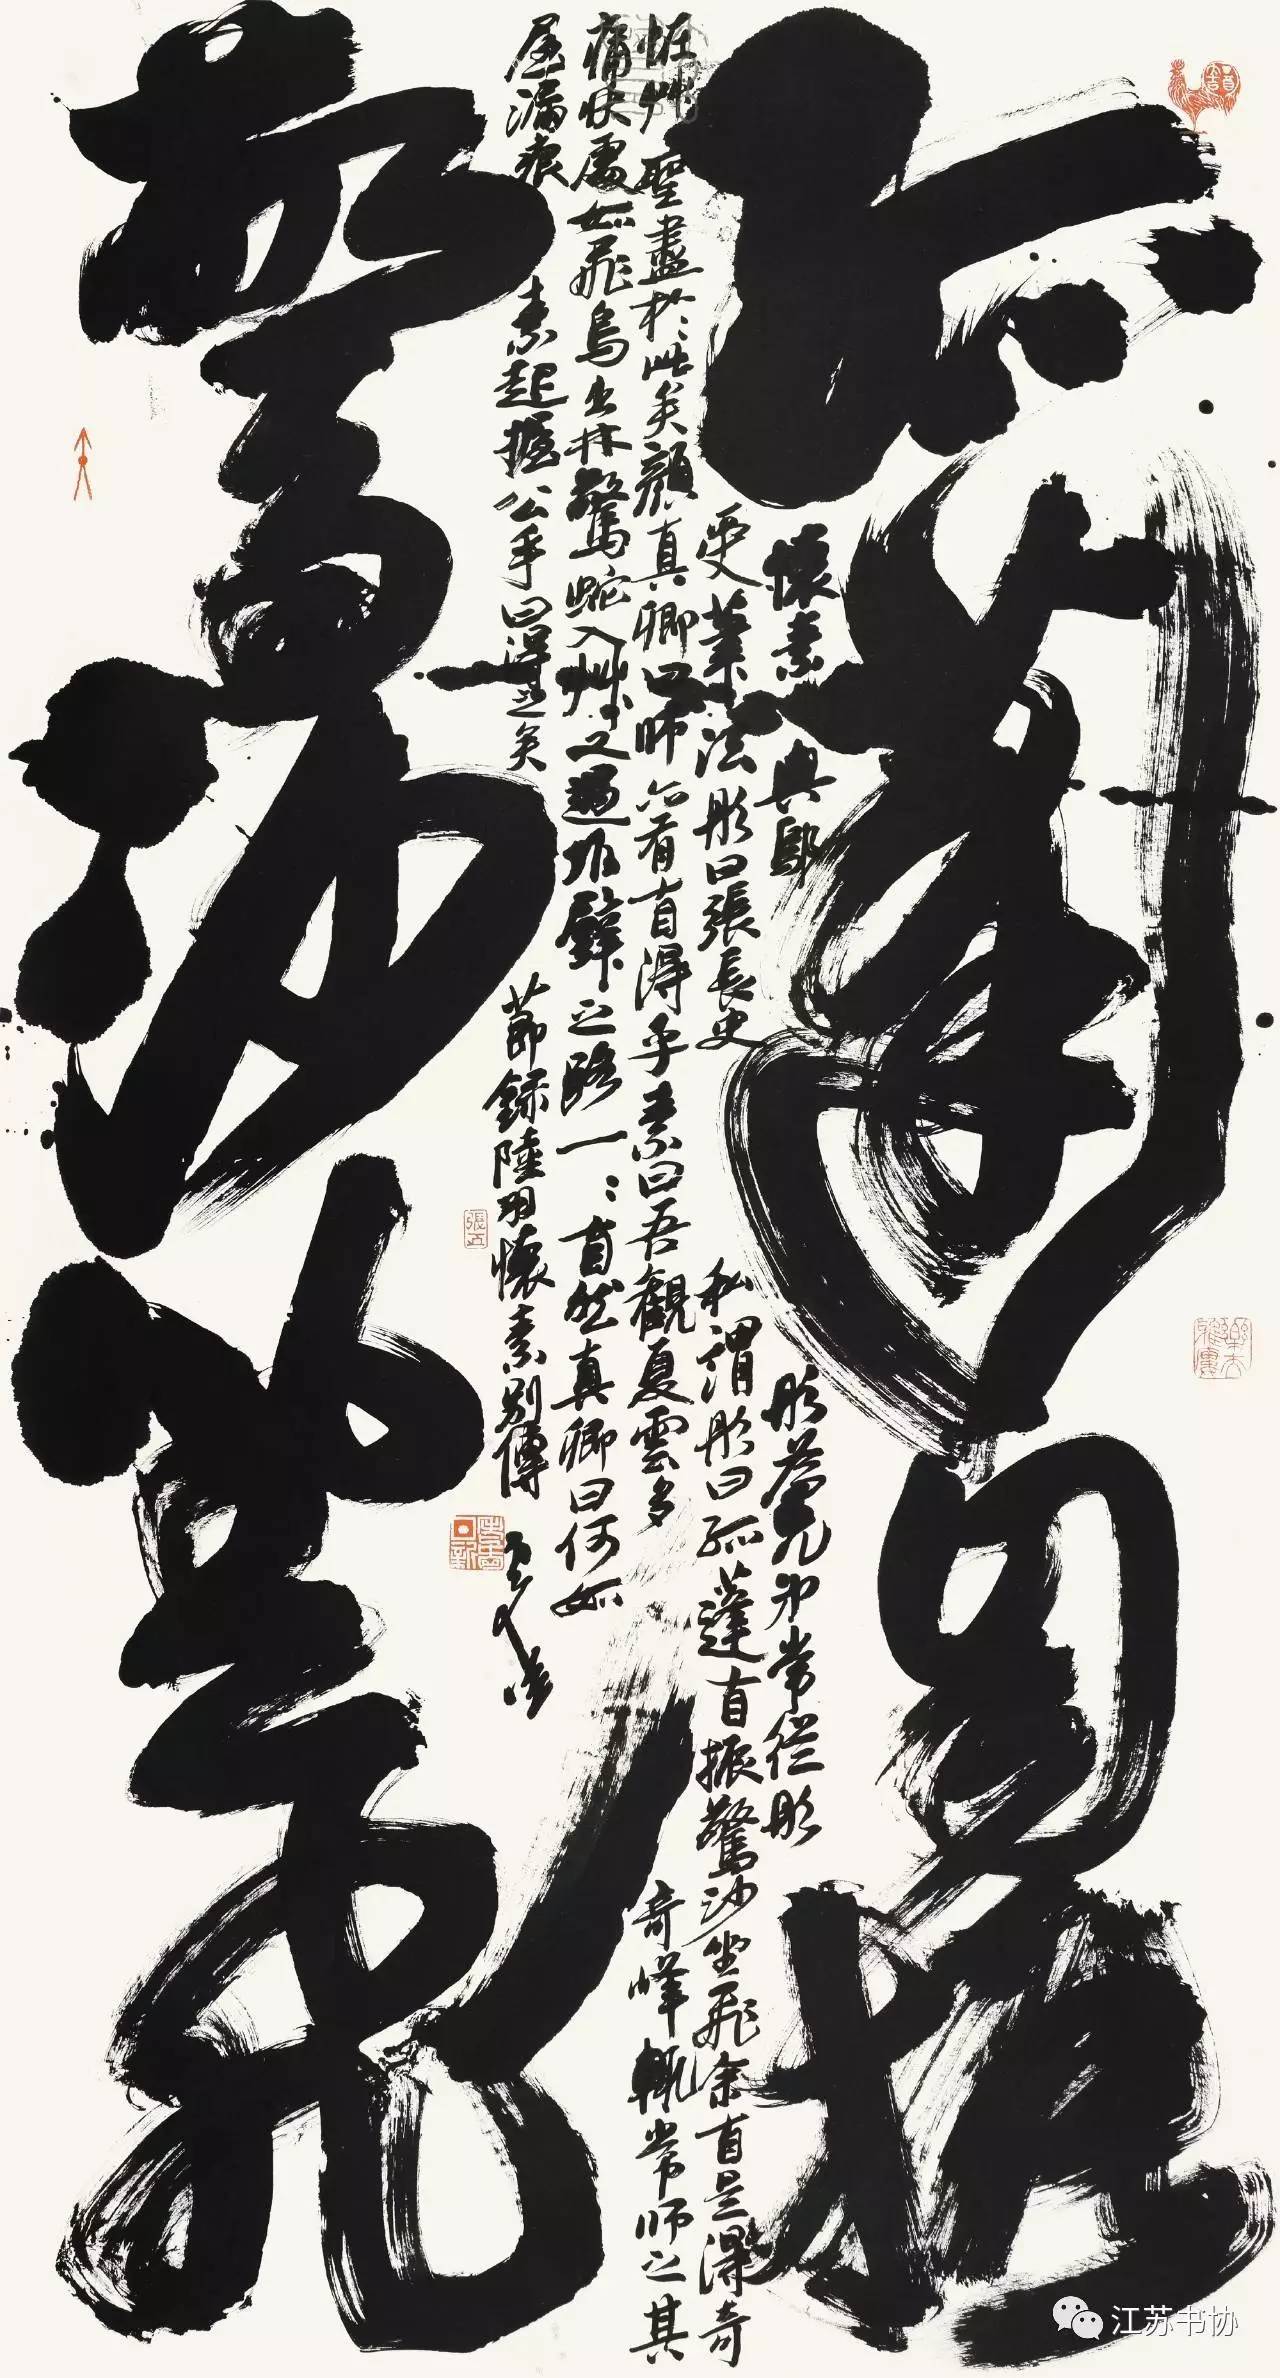 孤蓬自振
驚沙坐飛
懷素與鄔彤為兄弟常從彤
受筆法彤曰張長史私謂彤曰孤蓬自振驚沙坐飛余自是得奇
恠艸聖盡於此矣顏真卿曰師亦有自得乎素曰吾觀夏雲多奇峰輒常師之其
痛快處如飛鳥出林驚蛇入艸又遇坼壁之路一〻自然真卿曰何如
屋漏痕素起握公手曰得之矣節錄陸羽懷素別傳
江苏书协